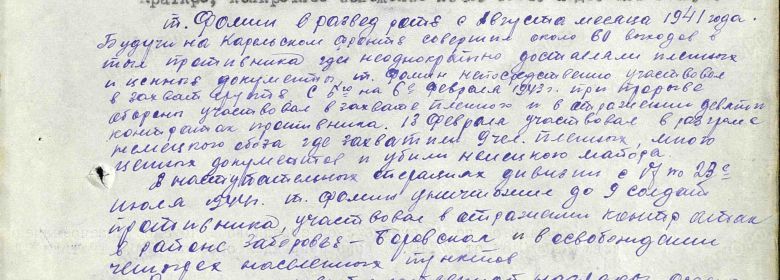 т. Фомин в развед роте с Августа месяца 1941 года.
Будучи на Карельском фронте совершил около 60 выходов в
тыл противника где неоднократно доставляли пленных
и ценные документы, т. Фомин непосредственно участвовал
в захват группе с 5го на 6е февраля 1943 г. при прорыве
обороны участвовал в захвате пленного и в отражении девяти
контратак противника. 13 февраля участвовал в разгроме
немецкого обоза где захватили 9 чел. пленных, много
ценных документов и убили немецкого майора.
В наступательных операциях дивизии с по 23е
июля т. Фомин уничтожил до 9 солдат
противника, участвовал в отражении контр атак
в районе Заборовья - Боровская и в освобождении
четырех населенных пунктов